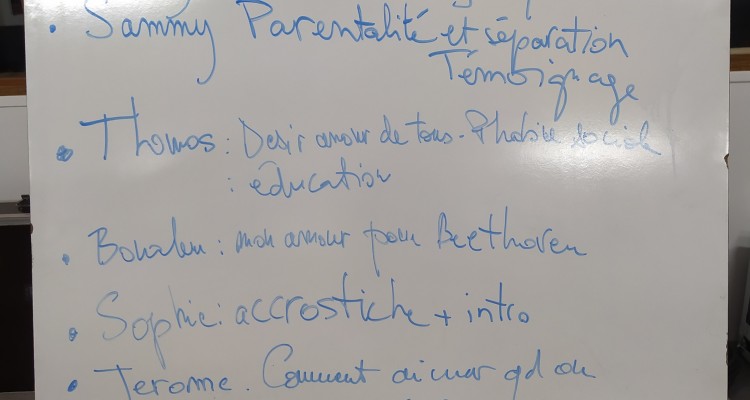 • Sammy Parentalité et séparation
Témoignage
• Thomas : Desir amour de tous - Phobie sociale
: éducation
• Boualem : mon amour pour Beethoven
• Sophie : accrostiche + intro
• Jerome. Comment aimer qd on